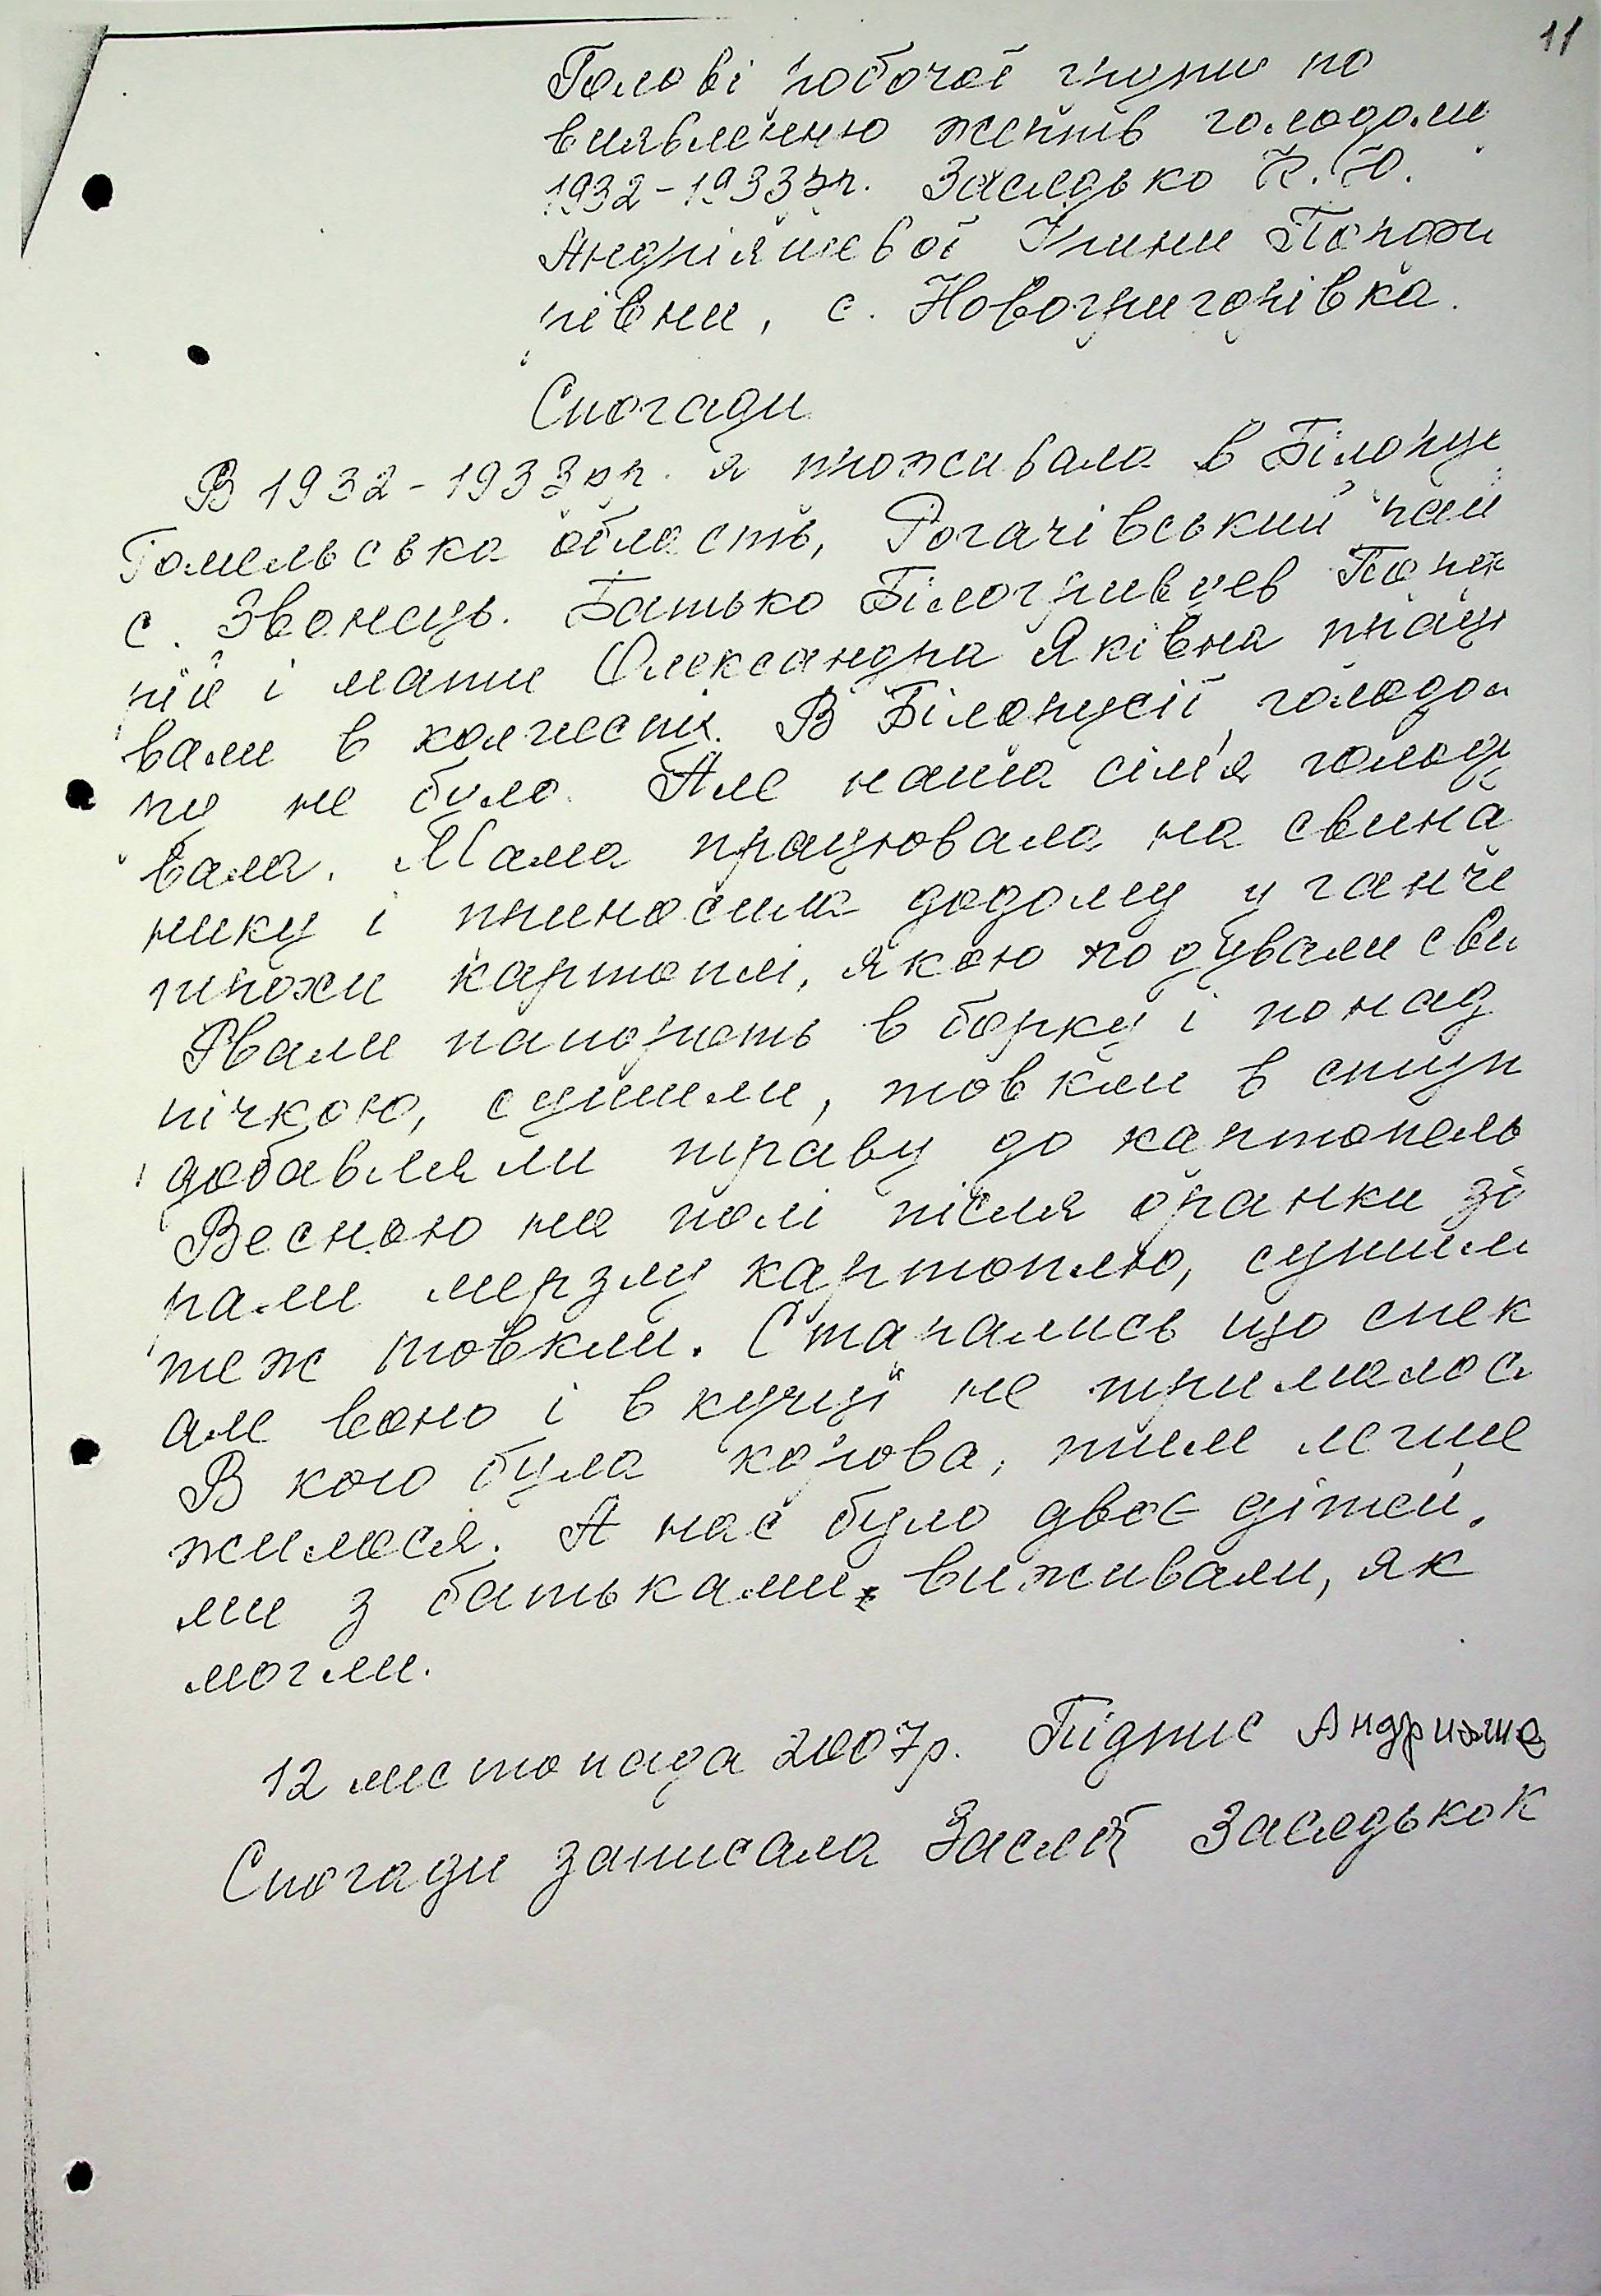 11
Голові робочої групи по
виявленню жертв голодом
1932-1933рр. Заслядько К.Ю.
Андріяшевої Ірини Порфи
рівни, с. Новогригорівка.
Спогади
В 1932-1933рр. я проживала в Білорус
Гомельська область, Рогачівський рай
с. Звонець. Батько Білогривцев Порф
рій і мати Олександра Яківна працю
вали в колгоспі. В Білорусії, голодом
ру не було. Але наша сім'я голоду
вала. Мама працювала на свина
нику і приносила додому у ганчі
трохи картоплі, якою годували сви
Рвали папороть в борку і понад
річкою, сушили, товкли в ступі
добавляли траву до картопель
Весною на полі після оранки зб
рали мерзлу картоплю, сушили
теж товкли. Старались що спек
але воно і в куски не трималос
В кого була корова, тим легше
жилося. А нас було двоє дітей,
ми з батьками виживали, як
могли.
12 листопада 2007р. Підпис Андрияше
Спогади записала Заслядько К